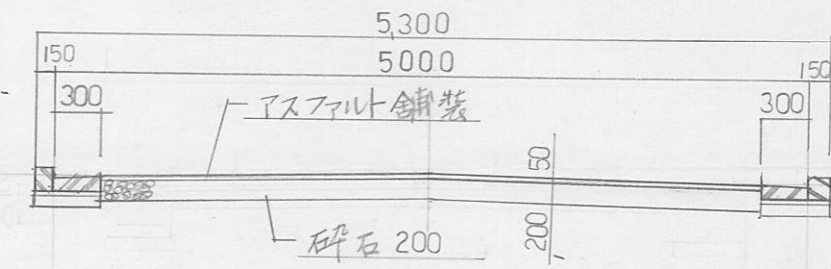 5,300
150 5000 150
300 アスファルト舗装 300
50
砕石 200 200